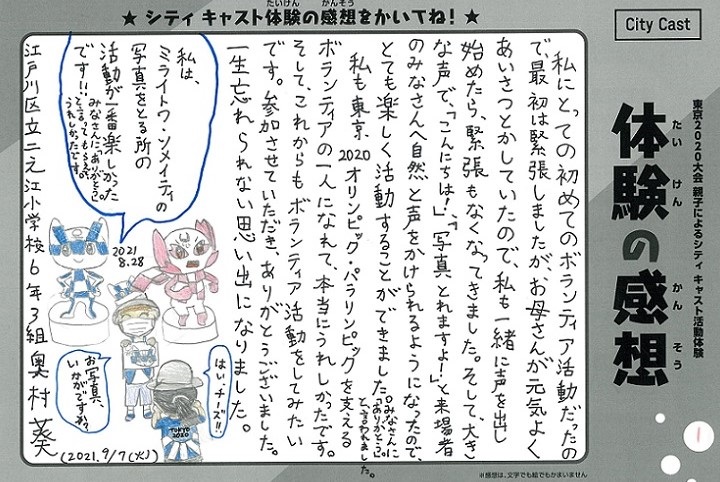 ★ シティ キャスト体験の感想をかいてね！ ★
たいけん
かんそう
City Cast
東京2020大会 親子によるシティ キャスト活動体験
体験の感想
たい けん
かん そう
私にとっての初めてのボランティア活動だったの
で、最初は緊張しましたが、お母さんが元気よく
あいさつとかしていたので、私も一緒に声を出し
始めたら、緊張もなくなってきました。そして、大き
な声で、「こんにちは！」、「写真とれますよ！」と来場者
のみなさんへ自然と声をかけられるようになったので、
とても楽しく活動することができました。
みなさんに
「ありがとう。」
と、言われました。
私も東京2020オリンピック・パラリンピックを支える
ボランティアの一人になれて、本当にうれしかったです。
そして、これからもボランティア活動をしてみたい
です。参加させていただき、ありがとうございました。
一生忘れられない思い出になりました。
私は、
ミライトワ・ソメイティの
写真をとる所の
活動が一番楽しかった
です!!
みなさんに、「ありがとう。」
と言ってもらえて、
うれしかったです。
2021
8.28
はい、チーズ!!
お写真、
いかがですか？
TOKYO
2020
江戸川区立二之江小学校6年3組 奥村葵
(2021.9/7(火))
※感想は、文字でも絵でもかまいません
1